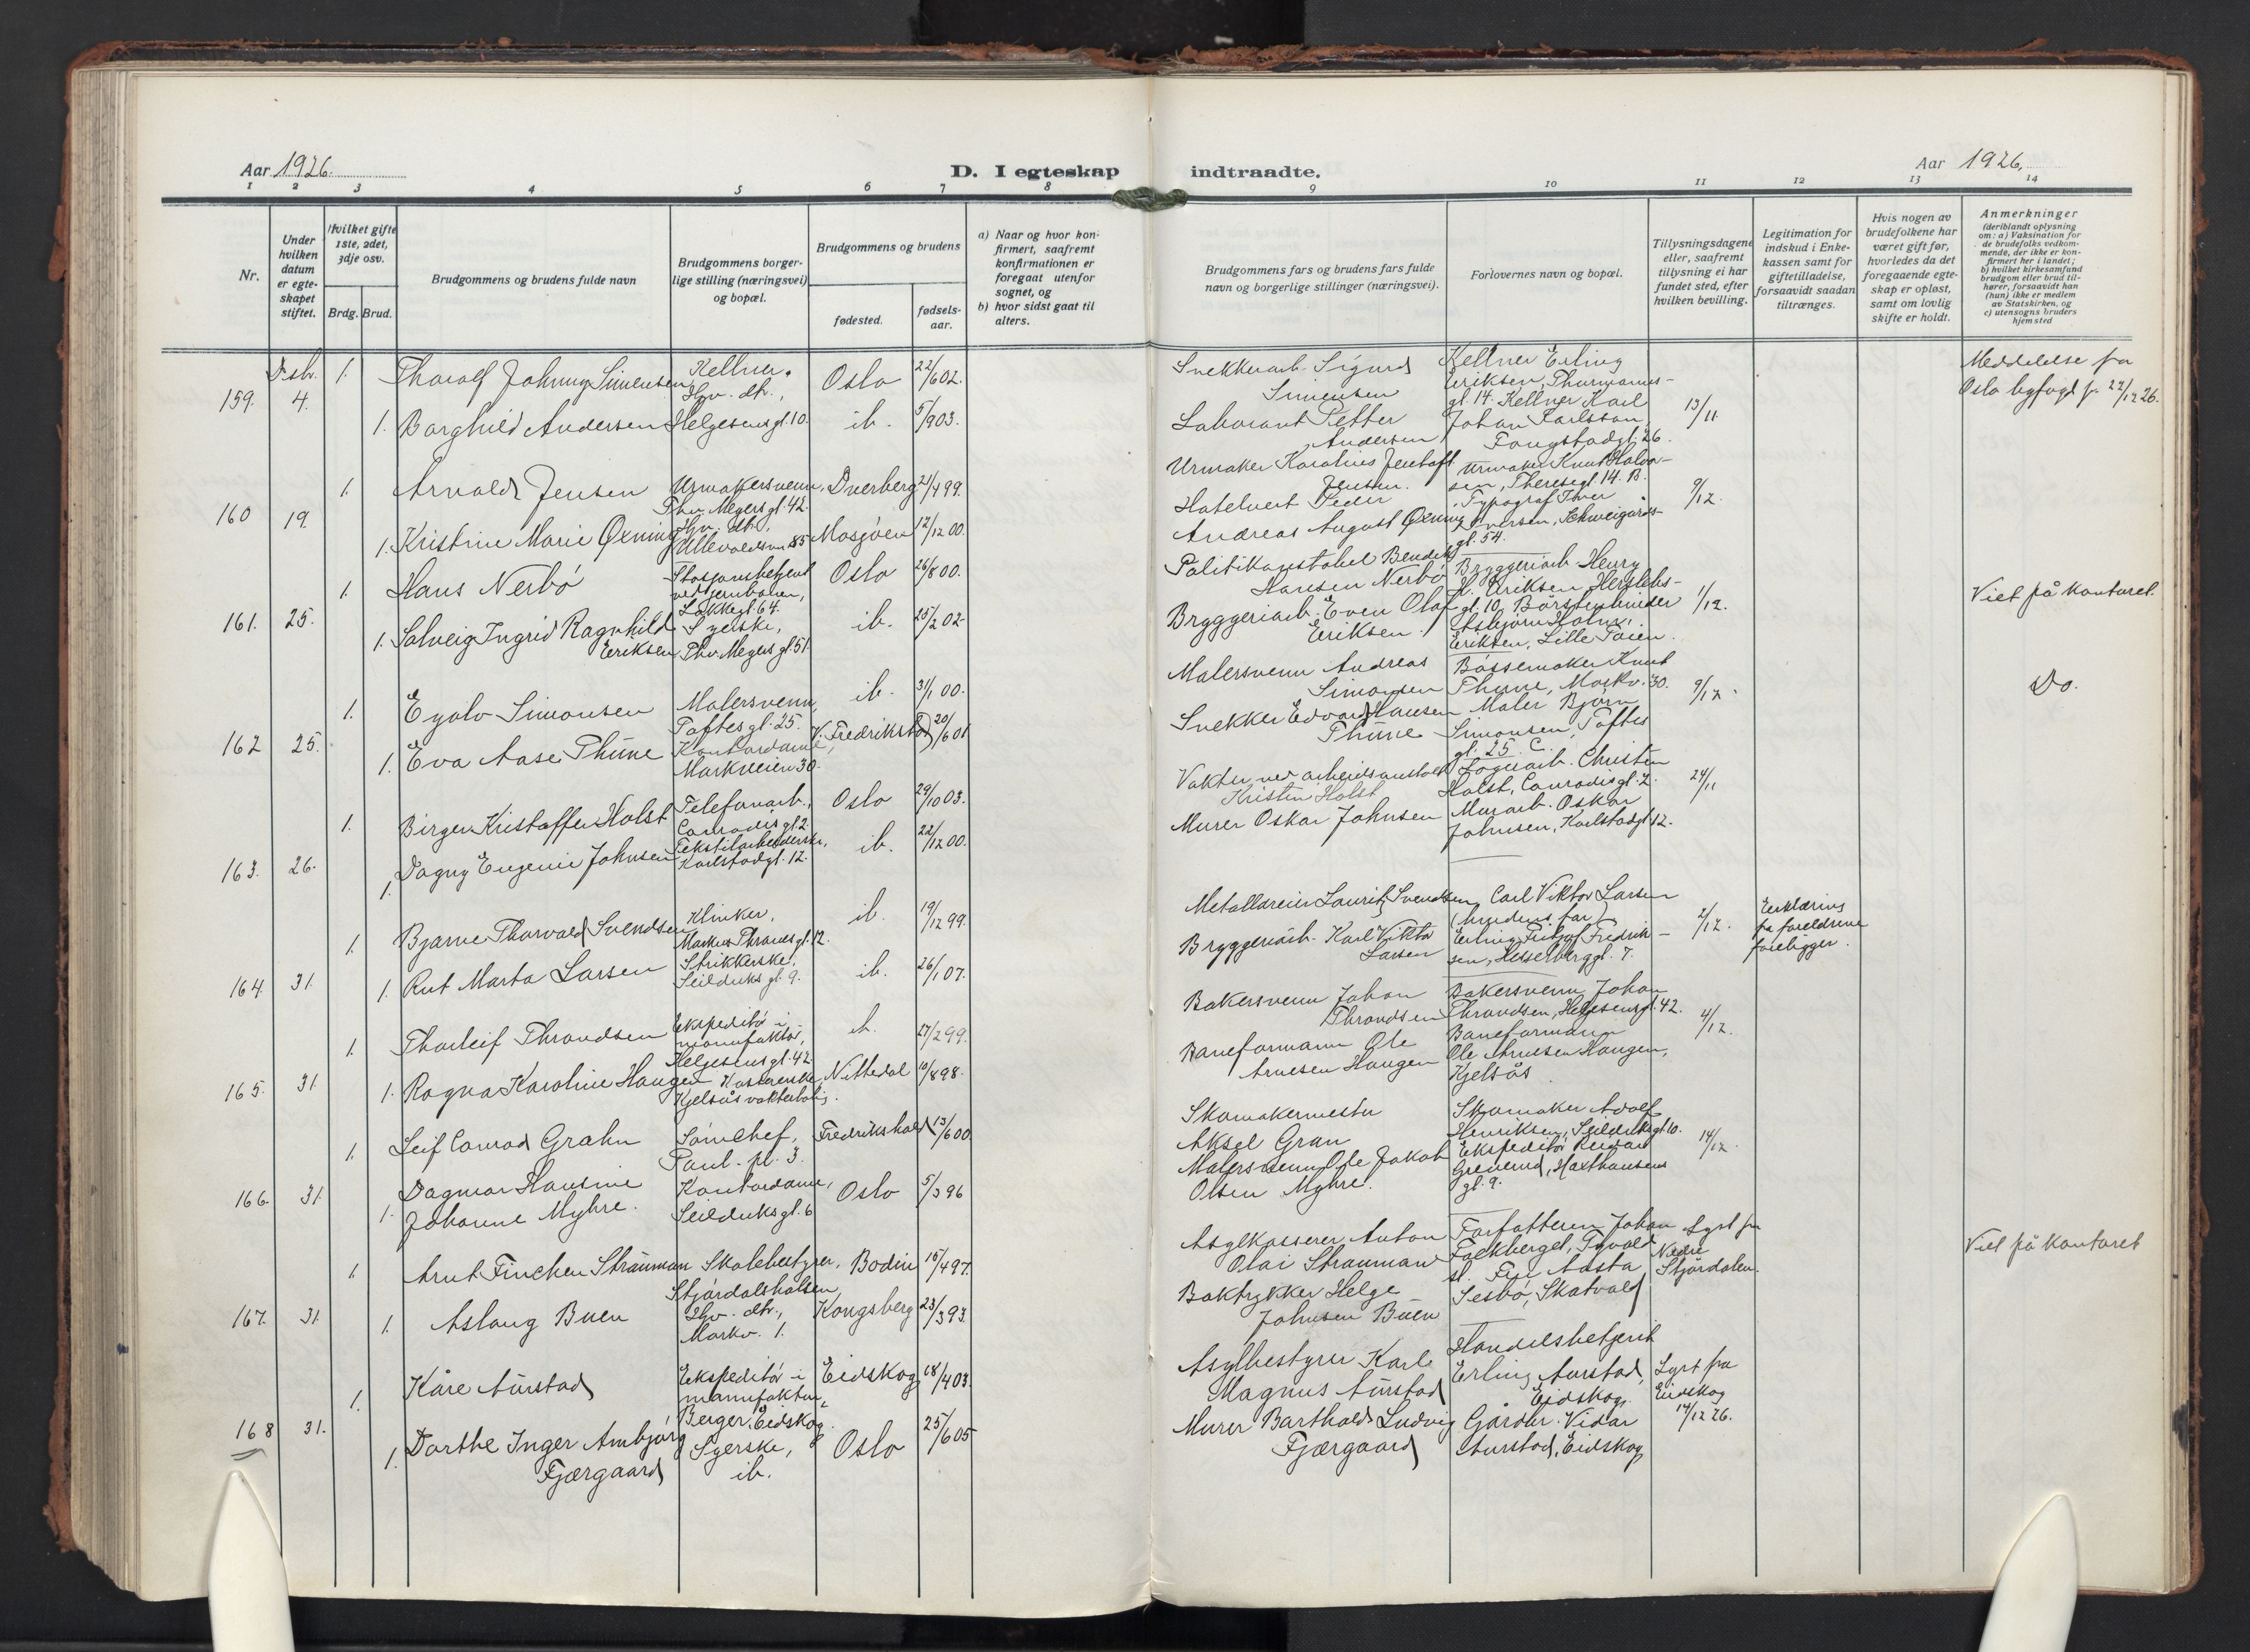 Aar 1926.
D. I egteskap indtraadte.
Aar 1926.
1 2 3 4 5 6 7 8 9 10 11 12 13 14
Nr.
Under hvilken datum er egteskapet stiftet.
Hvilket gifte 1ste, 2det, 3dje osv.
Brdg. Brud.
Brudgommens og brudens fulde navn
Brudgommens borgerlige stilling (næringsvei) og bopæl.
Brudgommens og brudens
fødested.
fødselsaar.
a) Naar og hvor konfirmert, saafremt konfirmationen er foregaat utenfor sognet, og
b) hvor sidst gaat til alters.
Brudgommens fars og brudens fars fulde navn og borgerlige stillinger (næringsvei).
Forlovernes navn og bopæl.
Tillysningsdagene eller, saafremt tillysning ei har fundet sted, efter hvilken bevilling.
Legitimation for indskud i Enkekassen samt for giftetilladelse, forsaavidt saadan tiltrænges.
Hvis nogen av brudefolkene har været gift før, hvorledes da det foregaaende egteskap er opløst, samt om lovlig skifte er holdt.
Anmerkninger (deriblandt oplysning om: a) Vaksination for de brudefolks vedkommende, der ikke er konfirmert her i landet; b) hvilket kirkesamfund brudgom eller brud tilhører, forsaavidt han (hun) ikke er medlem av Statskirken, og c) utensogns bruders hjemsted
159. Dsbr. 4.
1. Thorolf Johnny Simensen Kellner. Oslo 22/6 02.
Hv. dtr.,
1. Borghild Andersen Helgesens gt. 10. ib. 5/9 03.
Snekkerarb. Sigurd Simensen
Laborant Petter Andersen
Kellner Erling Eriksen, Thurmannsgt. 14. Kellner Karl Johan Karlsson, Fougstadgt. 26.
13/11
Meddelelse fra Oslo byfogd fr. 22/12 26.
160 19.
1. Arnold Jensen Urmakersvenn, Thv. Meyers gt. 42. Dverberg 21/4 99.
1. Kristine Marie Øxning Hv. dtr. Ullevoldsv. 85 Mosjøen 12/12 00.
Urmaker Karolius Jentoft Jensen.
Hotelvert Peder Andreas August Øxning
Urmaker Knut Halvorsen, Theresegt. 14. B.
Typograf Thor Iversen, Schweigaardsgt. 54.
9/12.
161. 25.
1. Hans Nerbö Stasjonsbetjent ved jernbanen, Lakkegt. 64. Oslo 26/8 00.
1. Solveig Ingrid Ragnhild Eriksen Syerske, Thv. Meyers gt. 51. ib. 25/2 02.
Politikonstabel Bendik Hansen Nerbö
Bryggeriarb. Even Olaf Eriksen
Bryggeriarb. Henry H. Eriksen Herslebsgt. 10. Börstenbinder Asbjörn Holm, Eriksen, Lille Töien.
1/12.
Viet på kontoret.
162 25.
1. Eyolv Simonsen Malersvenn, Toftes gt. 25. ib. 31/1 00.
1. Eva Aase Thüne Kontordame, Markveien 30. V. Fredrikstad 20/6 01
Malersvenn Andreas Simonsen
Snekker Edvard Hansen Thüne
Bössemaker Knut Thune, Markv. 30.
Maler Björn Simonsen, Toftes gt. 25. C.
9/12.
Do.
163. 26.
1. Birger Kristoffer Holst Telefonarb., Conradis gt. 2 Oslo 29/10 03.
1. Dagny Eugenie Johnsen Tekstilarbeiderske, Karlstadgt. 12. ib. 22/12 00.
Vakter ved arbeidsanstalt Kristen Holst
Murer Oskar Johnsen
Lagerarb. Christen Holst, Conradisgt. 2.
Murarb. Oskar Johnsen, Karlstadgt. 12.
24/11
164. 31.
1. Bjarne Thorvald Svendsen Klinker, Markus Thranes gt. 12. ib. 19/12 99.
1. Rut Marta Larsen Strikkerske, Seilduks gt. 9. ib. 26/1 07.
Metalldreier Laurits Svendsen
Bryggeriarb. Karl Viktor Larsen
Carl Viktor Larsen (brudens far)
Erling Fritjof Fredriksen, Hesselberggt. 7.
2/12.
Erklæring fra foreldrene foreligger.
165. 31.
1. Thorleif Throndsen Ekspeditör i manufaktur, Helgesens gt. 42. ib. 27/2 99.
1. Ragna Karoline Haugen Kassererske, Kjelsås vokterbolig. Nittedal 10/8 98.
Bakersvenn Johan Throndsen
Baneformann Ole Arnesen Haugen
Bakersvenn Johan Throndsen, Helgesensgt. 42.
Baneformann Ole Arnesen Haugen, Kjelsås
4/12.
166. 31.
1. Leif Conrad Grahn Paul. pl. 3. Fredrikshald 13/6 00.
1. Dagmar Hansine Johanne Myhre. Kontordame, Seilduks gt. 6 Oslo 5/3 96
Skomakermester Aksel Gran
Malersvenn Ole Jakob Olsen Myhre.
Skomaker Adolf Henriksen, Seilduksgt. 10.
Ekspeditör Reidar Grenerud, Maxthausens gt. 9.
14/12.
167. 31.
1. Arnt Fincken Strauman Skolebestyrer, Stjördalshalsen Bodin 15/4 97.
1. Aslaug Buen Hv. dtr., Markv. 1. Kongsberg 23/3 93.
Asylkasserer Anton Olai Strauman
Boktrykker Helge Johnsen Buen
Forfatteren Johan Falkberget,
Aasta Sesbö, Skatvold
Lyst fra Nedre Stjördalen.
Viet på kontoret
168 31.
1. Kåre Aurstad Ekspeditör i manufaktur, Berger, Eidskog. Eidskog 18/4 03.
1. Dorthe Inger Ambjörg Fjærgaard Syerske, ib. Oslo 25/6 05
Asylbestyrer Karl Magnus Aurstad
Murer Barthold Ludvig Fjærgaard
Handelsbetjent Erling Aurstad, Eidskog.
Gårdbr. Vidar Aurstad, Eidskog
Lyst fra Eidskog 14/12 26.